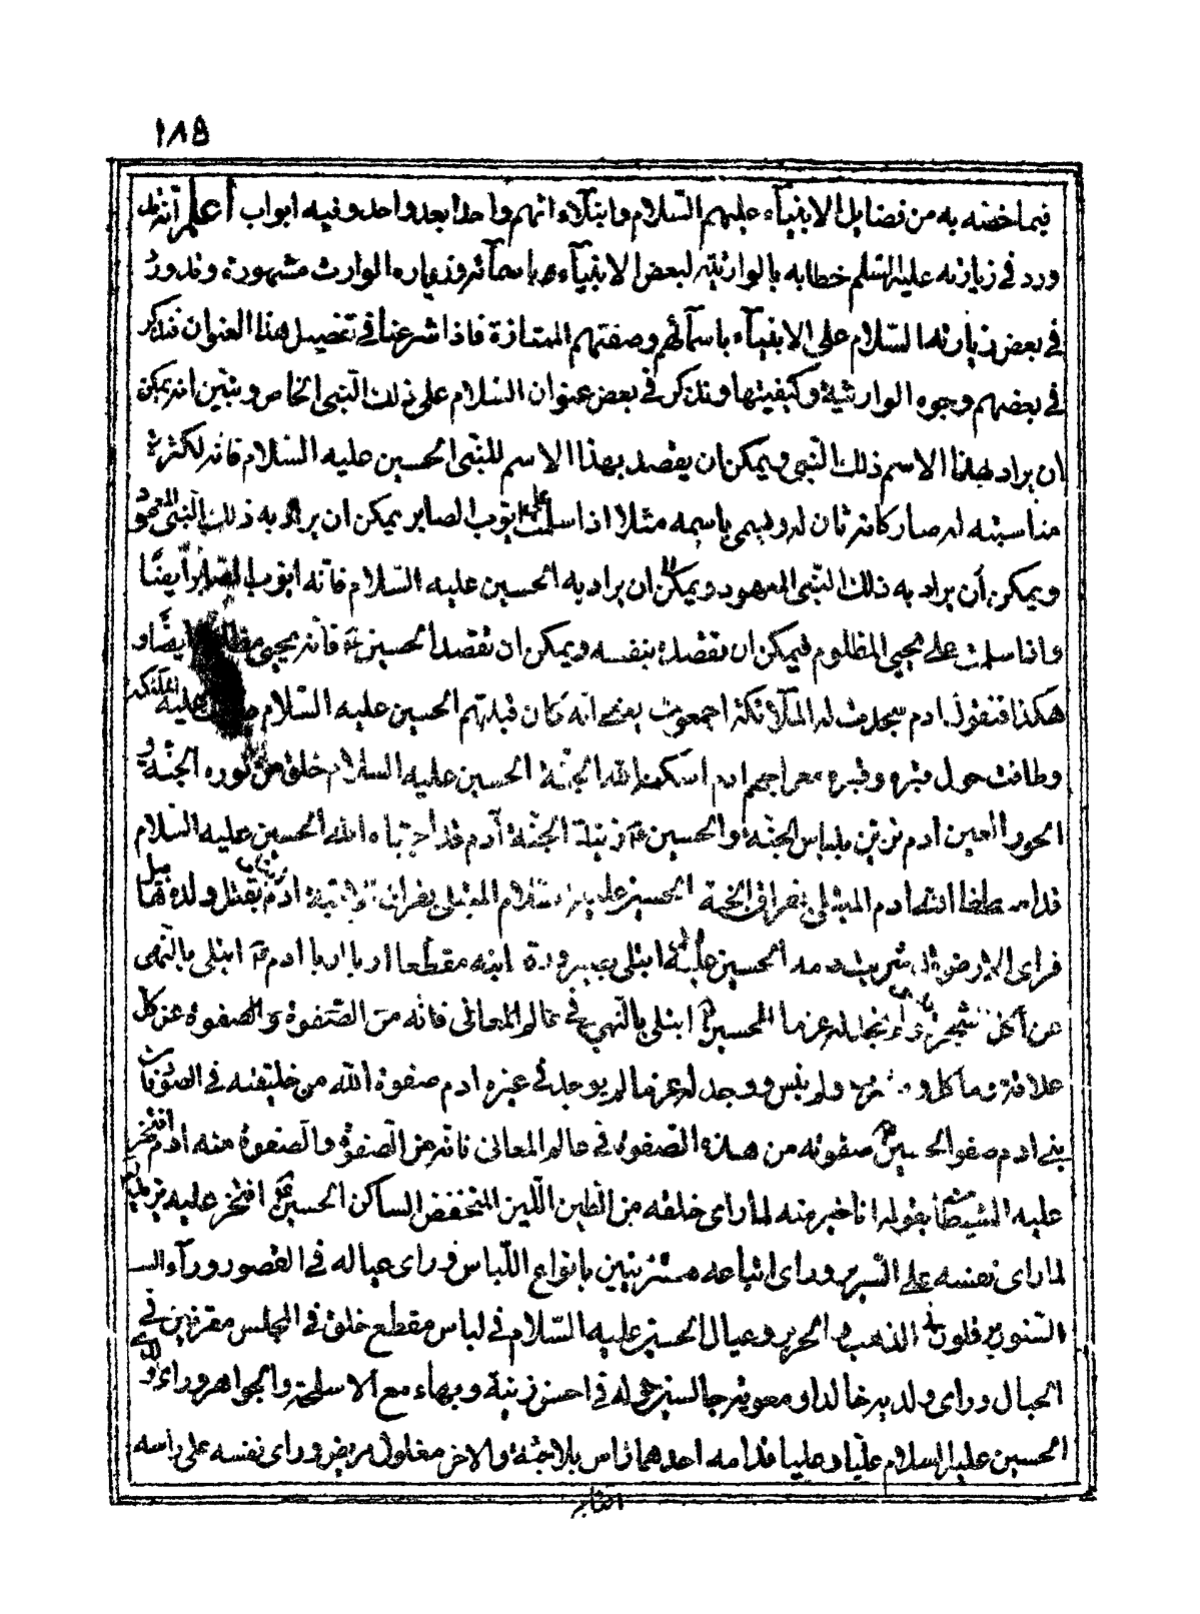 ١٨٥
فيما خصّه به من فضايل الانبيآء عليهم السّلام وابتلآء اتهم واحدا بعد واحد وفيه ابواب أعلم أنّه
ورد في زيارته عليه السّلم خطابه بالوارثيّة لبعض الانبيآء باسمآئهم وزيارة الوارث مشهورة وقد ورد
في بعض زيارته السّلام على الانبيآء باسمآئهم وصفتهم الممتازة فاذا شرعنا في تفصيل هذا العنوان نذكر
في بعضهم وجوه الوارثية وكيفيتها ونذكر في بعض عنوان السّلام على ذلك النّبى الخاص ونبيّن انه يمكن
ان يراد بهذا الاسم ذلك النّبى ويمكن ان يقصد بهذا الاسم للنّبى الحسين عليه السّلام فانه لكثرة
مناسبته له صار كانه ثان له ويسمى باسمه مثلا اذا سلمت على ايّوب الصابر يمكن ان يراد به ذلك النّبى
ويمكن أن يراد به ذلك النّبى المعهود ويمكن ان يراد به الحسين عليه السّلام فانّه ايّوب الصّابر أيضًا
واذا سلمت على يحيى المظلوم فيمكن ان تقصده بنفسه ويمكن ان تقصد الحسين ع فانّه يحيى ايضًا و
هكذا فنقول ادم سجدت له الملآئكة اجمعون بمعنى انّه كان قبلتهم الحسين عليه السّلام عليه الملائكة
وطافت حول قبره وقبره معراجهم ادم اسكنه الله الجنّة الحسين عليه السلام خلق من نوره الجنّة و
الحور العين ادم تزيّن بلباس الجنّة والحسين ع زينة الجنّة آدم قد اجتباه الله الحسين عليه السّلام
قد اصطفاه الله ادم المبتلى بفراق الجنة الحسين عليه السّلام المبتلى بفراق ادم بقتل ولده هابيل
فراى الارض شربت دمه الحسين عليه ابتلى ابنه مقطعا اربا اربا ادم ع ابتلى بالنّهى
عن أكل شجرة الحسين ابتلى بالنّهى في عالم المعانى فانّه من الصّفوة والصفوة عن كل
علاقة وماكل و ولم ينس ووجد له عزما لم يوجد في غيره ادم صفوة الله من خليقته في الصّور
بنى ادم صفو الحسين صفوته من هذه الصّفوة في عالم المعانى فانّه من الصّفوة والصفوة منه ادم افتخر
عليه الشيطان بقوله انا خير منه لما راى خلقه من الطّين اللّين المنخفض الساكن الحسين افتخر عليه
لما راى نفسه على السّرير وراى اتباعه متزيّنين بانواع اللّباس وراى عياله في القصور ورآء
السّتور الذهب والحرير وعيال الحسين عليه السّلام في لباس مقطع خلق في المجلس مقرّنين في
الحبال وراى ولديه خالدا ومعوية جالسين حوله في احسن زينة وبهاء مع الاسلحة والجواهر وراى
الحسين عليه السلام عليّا وعليا قدامه احدهما راس بلا جثة والاخر مغلول مريض وراى نفسه على راسه
التاج